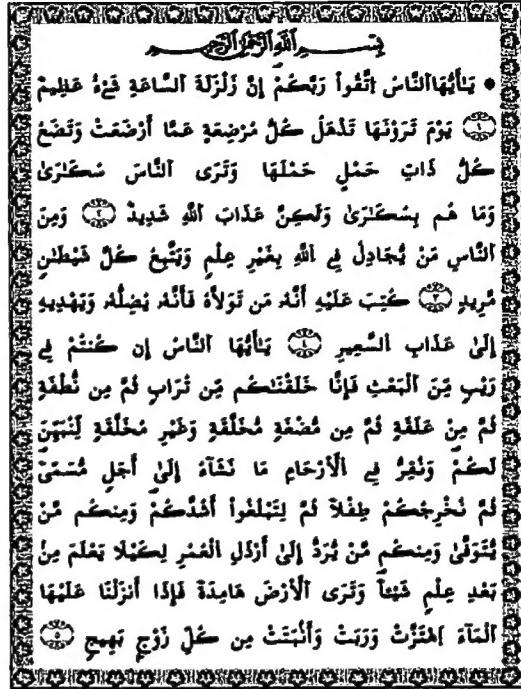 بِسْمِ اللَّهِ الرَّحْمَٰنِ الرَّحِيمِ
• يَـٰٓأَيُّهَا اَلنَّاسُ اِتَّقُواْ رَبَّكُمْۖ إِنَّ زَلْزَلَةَ اَلسَّاعَةِ شَےْءٌ عَظِيمٞ
١ يَوْمَ تَرَوْنَهَا تَذْهَلُ كُلُّ مُرْضِعَةٍ عَمَّآ أَرْضَعَتْ وَتَضَعُ
كُلُّ ذَاتِ حَمْلٍ حَمْلَهَا وَتَرَى اَلنَّاسَ سُكَٰرَىٰ
وَمَا هُم بِسُكَٰرَىٰ وَلَٰكِنَّ عَذَابَ اَللَّهِ شَدِيدٞ ٢ وَمِنَ
اَلنَّاسِ مَنْ يُّجَادِلُ فِے اِللَّهِ بِغَيْرِ عِلْمٍ وَيَتَّبِعُ كُلَّ شَيْطَٰنٍ
مَّرِيدٍ ٣ كُتِبَ عَلَيْهِ أَنَّهُۥ مَن تَوَلَّاهُ فَأَنَّهُۥ يُضِلُّهُۥ وَيَهْدِيهِ
إِلَىٰ عَذَابِ اِلسَّعِيرِ ٤ يَـٰٓأَيُّهَا اَلنَّاسُ إِن كُنتُمْ فِے
رَيْبٍ مِّنَ اَلْبَعْثِ فَإِنَّا خَلَقْنَٰكُم مِّن تُرَابٍ ثُمَّ مِن نُّطْفَةٍ
ثُمَّ مِنْ عَلَقَةٍ ثُمَّ مِن مُّضْغَةٍ مُّخَلَّقَةٍ وَغَيْرِ مُخَلَّقَةٍ لِّنُبَيِّنَ
لَكُمْۖ وَنُقِرُّ فِے اِلْأَرْحَامِ مَا نَشَآءُ اِلَىٰٓ أَجَلٍ مُّسَمّٗى
ثُمَّ نُخْرِجُكُمْ طِفْلاً ثُمَّ لِتَبْلُغُواْ أَشُدَّكُمْۖ وَمِنكُم مَّنْ
يُّتَوَفَّىٰ وَمِنكُم مَّنْ يُّرَدُّ إِلَىٰٓ أَرْذَلِ اِلْعُمُرِ لِكَيْلَا يَعْلَمَ مِنۢ
بَعْدِ عِلْمٍ شَيْـٔاٗۖ وَتَرَى اَلْأَرْضَ هَامِدَةٗ فَإِذَآ أَنزَلْنَا عَلَيْهَا
اَلْمَآءَ اَهْتَزَّتْ وَرَبَتْ وَأَنۢبَتَتْ مِن كُلِّ زَوْجٍ بَهِيجٍ ٥